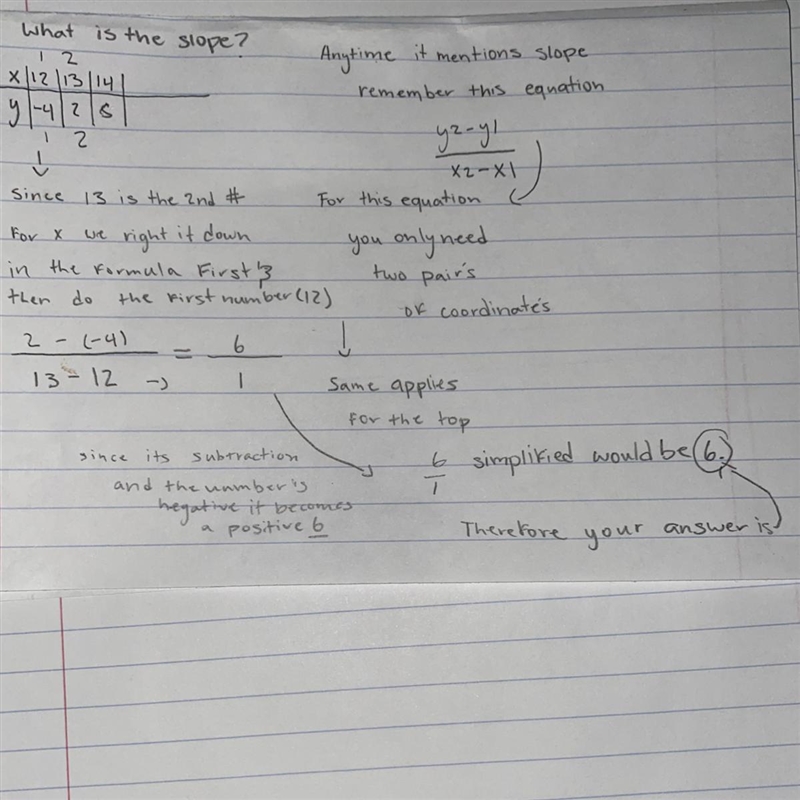 What is the slope?
1 2
x 12 13 14
y -4 2 8
1 2
Since 13 is the 2nd #
For x we right it down
in the formula first &
then do the first number (12)
2 - (-4) = 6
13 - 12 → 1
since its subtraction
and the unmber is
negative it becomes
a positive 6
Anytime it mentions slope
remember this equation
y2-y1
x2-x1
For this equation
you only need
two pair's
of coordinate's
Same applies
for the top
6 simplified would be 6.
1
Therefore your answer is